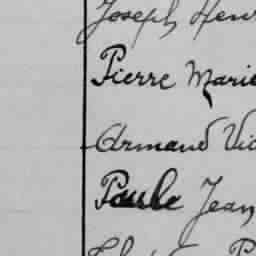 Joseph Henr
Pierre Marie
Armand Vic
Paule Jean